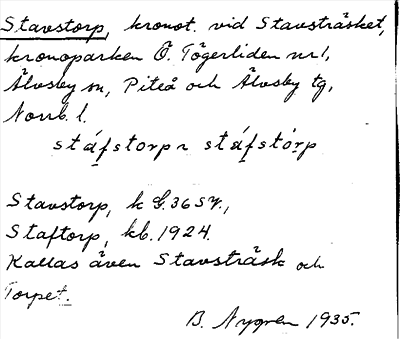 Stavstorp, kronot. vid Stavsträsket,
kronoparken Ö. Tögerliden nr 1,
Älvsby sn, Piteå och Älvsby tg,
Norrb. l.
stáfstorp ~ stáfstòrp
Stavstorp, k G.36 SV.,
Staftorp, kb. 1924.
Kallas även Stavsträsk och
Torpet.
B. Nygren 1935.